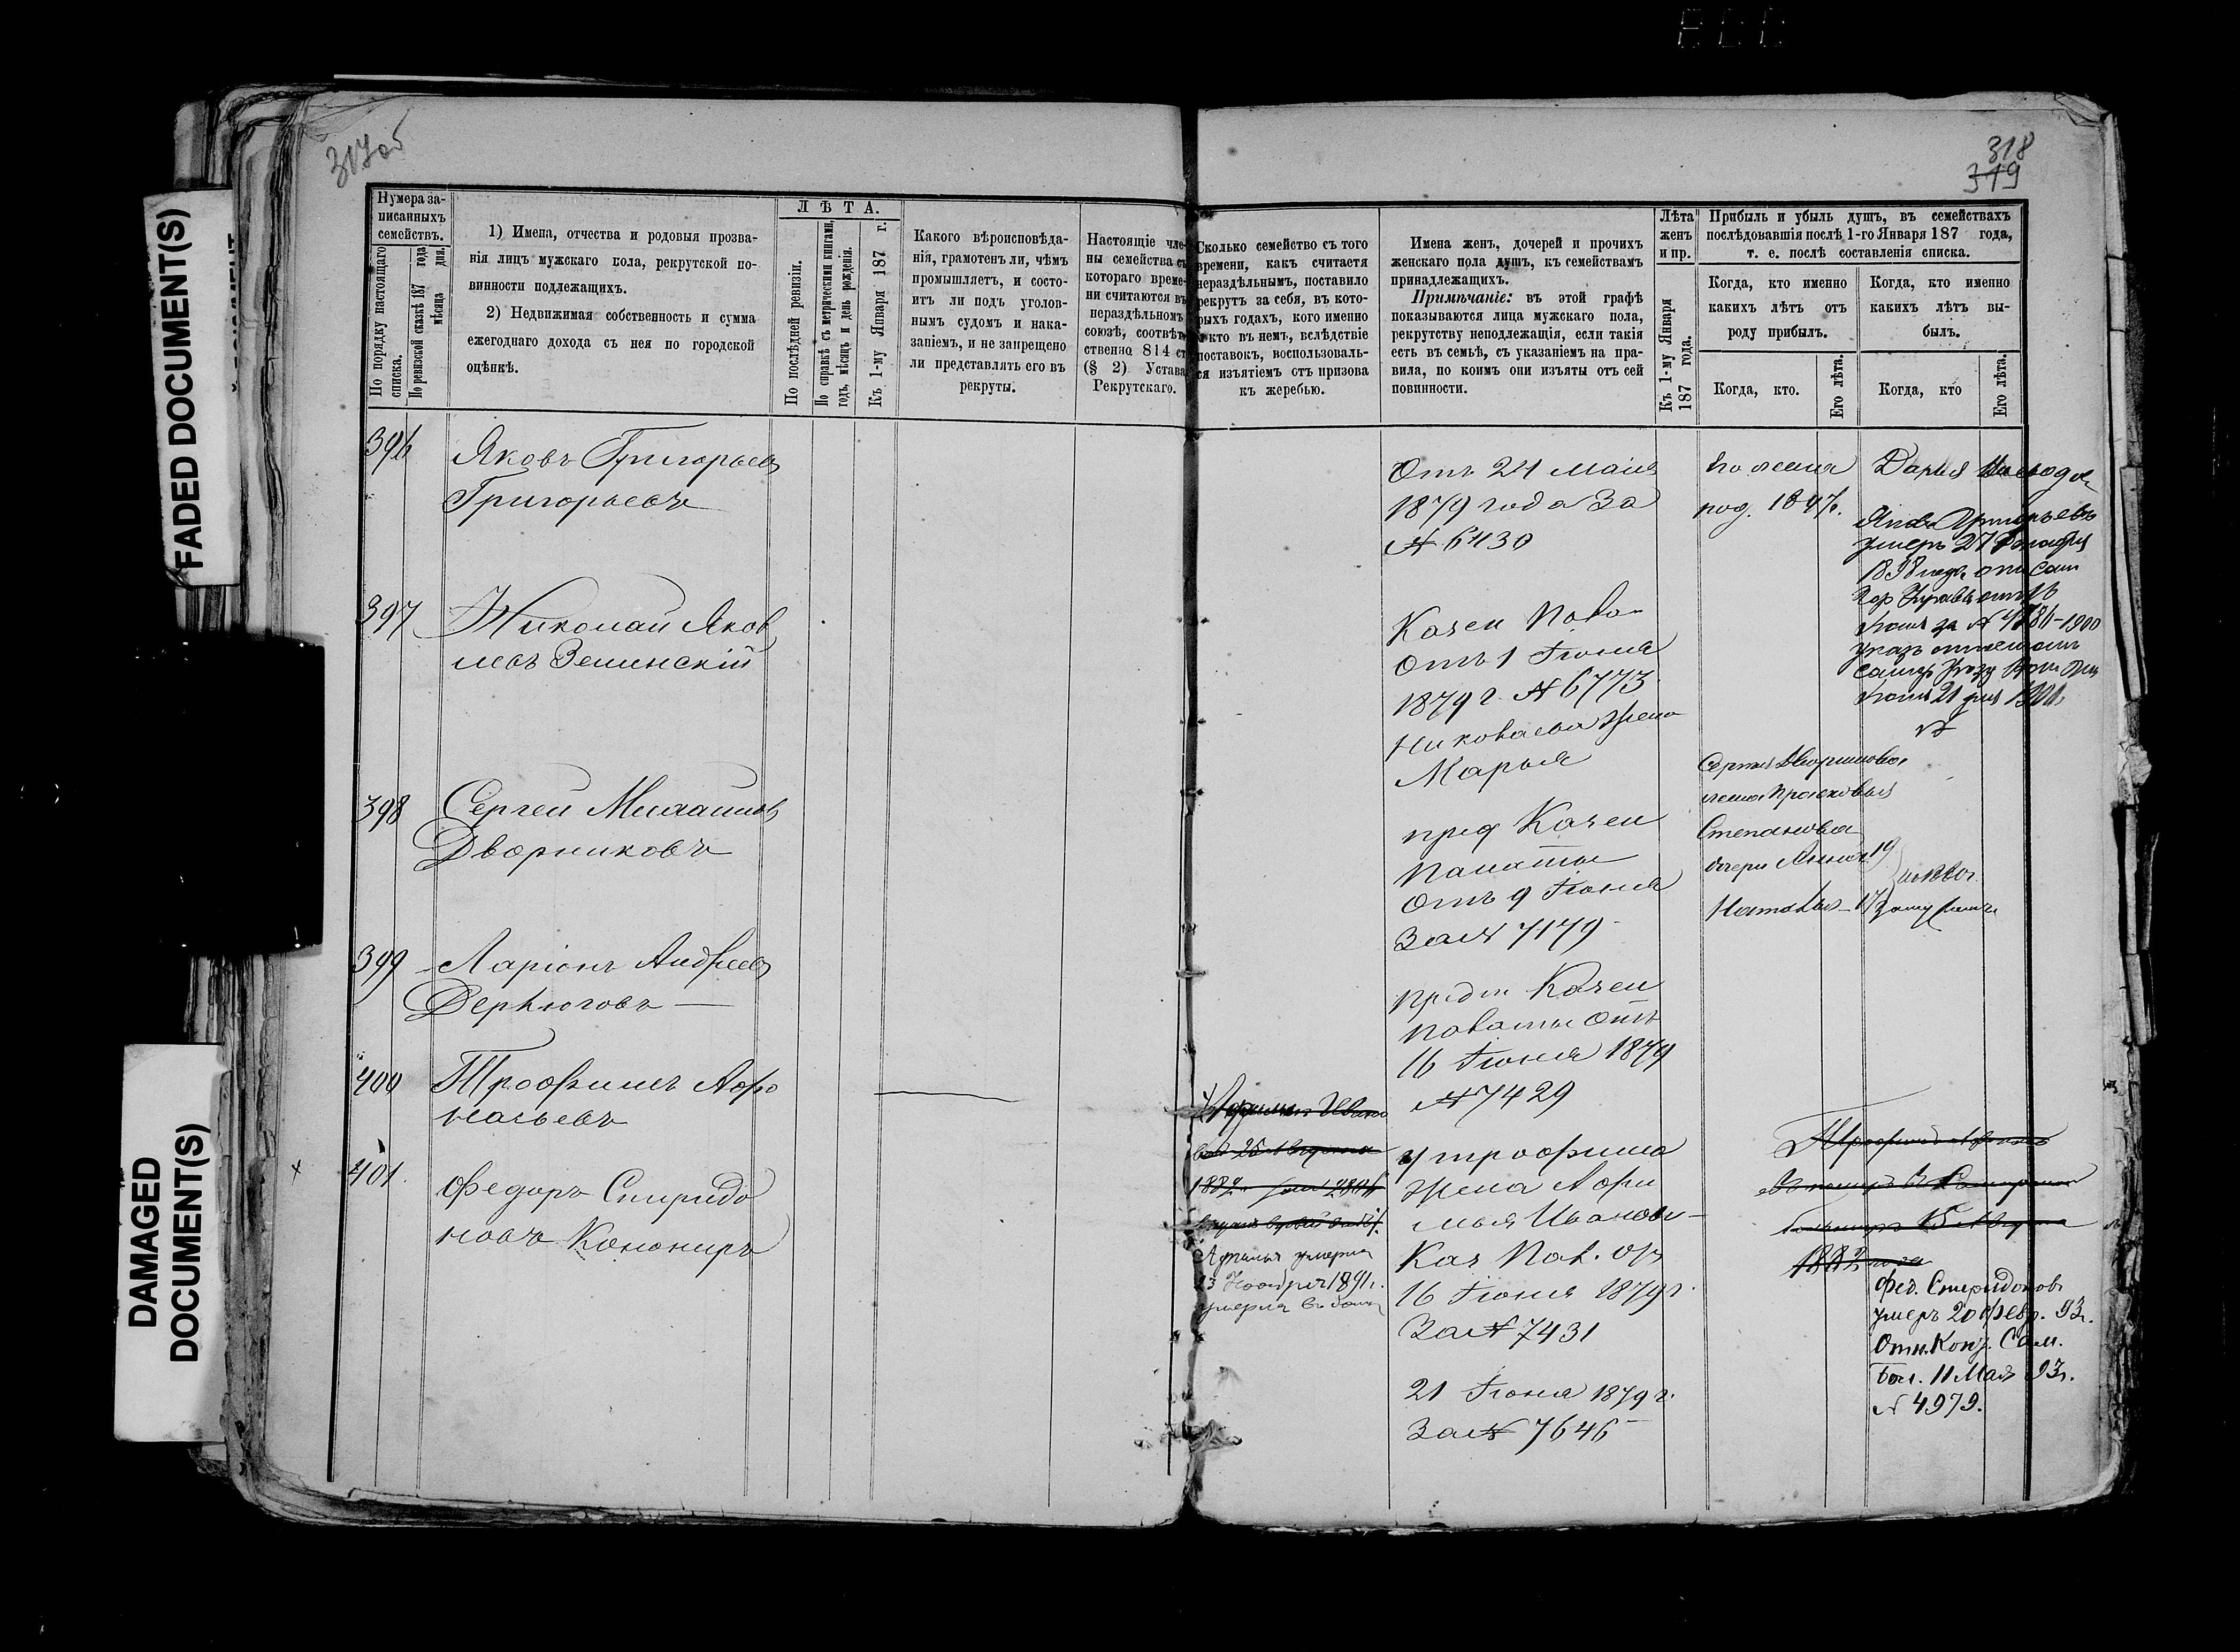 317 об
318
319
FADED DOCUMENT(S)
DAMAGED
DOCUMENT(S)
Нумера за-
писанныхъ
семействъ.
По порядку настоящаго
списка.
По ревизской сказкѣ 187 года
мѣсяца дня.
1) Имена, отчества и родовыя прозва-
нія лицъ мужскаго пола, рекрутской по-
винности подлежащихъ.
2) Недвижимая собственность и сумма
ежегоднаго дохода съ нея по городской
оцѣнкѣ.
ЛѢТА.
По послѣдней ревизіи.
По справкѣ съ метрическими книгами,
годъ, мѣсяцъ и день рожденія.
Къ 1-му Января 187 г.
Какого вѣроисповѣда-
нія, грамотенъ ли, чѣмъ
промышляетъ, и состо-
итъ ли подъ уголов-
нымъ судомъ и нака-
заніемъ, и не запрещено
ли представлять его въ
рекруты.
Настоящіе чле-
ны семейства съ
котораго време-
ни считаются въ
нераздѣльномъ
союзѣ, соотвѣт-
ственно 814 ст.
(§ 2) Устава
Рекрутскаго.
Сколько семейство съ того
времени, какъ считается
нераздѣльнымъ, поставило
рекрутъ за себя, въ кото-
рыхъ годахъ, кого именно
и кто въ немъ, вслѣдствіе
поставокъ, воспользоваль-
ся изъятіемъ отъ призова
къ жеребью.
Имена женъ, дочерей и прочихъ
женскаго пола душъ, къ семействамъ
принадлежащихъ.
Примѣчаніе: въ этой графѣ
показываются лица мужскаго пола,
рекрутству неподлежащія, если такія
есть въ семьѣ, съ указаніемъ на пра-
вила, по коимъ они изъяты отъ сей
повинности.
Лѣта
женъ
и пр.
Къ 1-му Января
187 года.
Прибыль и убыль душъ, въ семействахъ
послѣдовавшія послѣ 1-го Января 187 года,
т. е. послѣ составленія списка.
Когда, кто именно
какихъ лѣтъ отъ
роду прибылъ.
Когда, кто именно
какихъ лѣтъ вы-
былъ.
Когда, кто.
Его лѣта.
Когда, кто
Его лѣта.
396 Яковъ Григорьевъ
Григорьевъ
Отъ 24 маія
1879 года За
№ 6430
род. 1847.
Дарья
Яковъ Григорьевъ
умеръ 27
397 Николай Яков
левъ Зелинскій
Казен Пала
Отъ 1 Іюня
1879 г. № 6773
Николаева жена
Марья
398 Сергей Михайловъ
Дворниковъ
пред Казен
Палаты
Отъ 9 Іюня
За № 7179
Сергея Дворникова
жена Прасковья
Степановна
дочери Анна 19
Наталья 17
399 Ларіонъ Андреевъ
Дерюговъ
Предп Казен
Палаты Отъ
16 Іюня 1879
№ 7429
400 Трофимъ Афо
насьевъ
у трофима
жена Афи
мья Иванов
Каз Пал. От
16 Іюня 1879 г.
За № 7431
умерла
23 Ноября 1891 г.
401. Федоръ Спиридо
новъ Канониръ
21 Іюня 1879 г.
За № 7646
1882 года
Фед. Спиридоновъ
умеръ 20 Февр. 93 г.
Отн. Конт. Сам.
Бол. 11 Мая 93 г.
№ 4979.